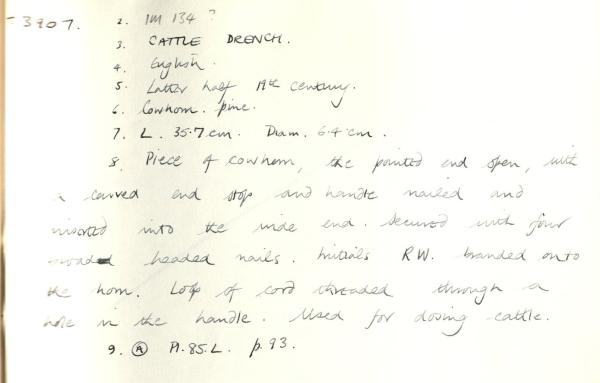 3907. 2. IM 134 ?
3. CATTLE DRENCH.
4. English.
5. Latter half 19th century.
6. Cowhorn. pine.
7. L. 35.7cm. Diam. 6.4cm.
8. Piece of cowhorn, the pointed end open, with
a carved end stop and handle nailed and
inserted into the wide end. Secured with four
headed nails. Initials RW. branded onto
the horn. Loop of cord threaded through a
hole in the handle. Used for dosing cattle.
9. A Pl.85.L. p.93.